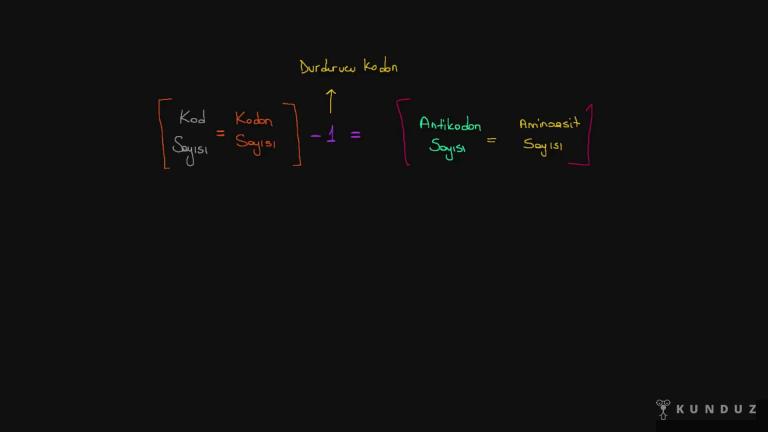 Durdurucu Kodon
Kod = Kodon
Sayısı Sayısı
- 1 =
Antikodon = Aminoasit
Sayısı Sayısı
KUNDUZ